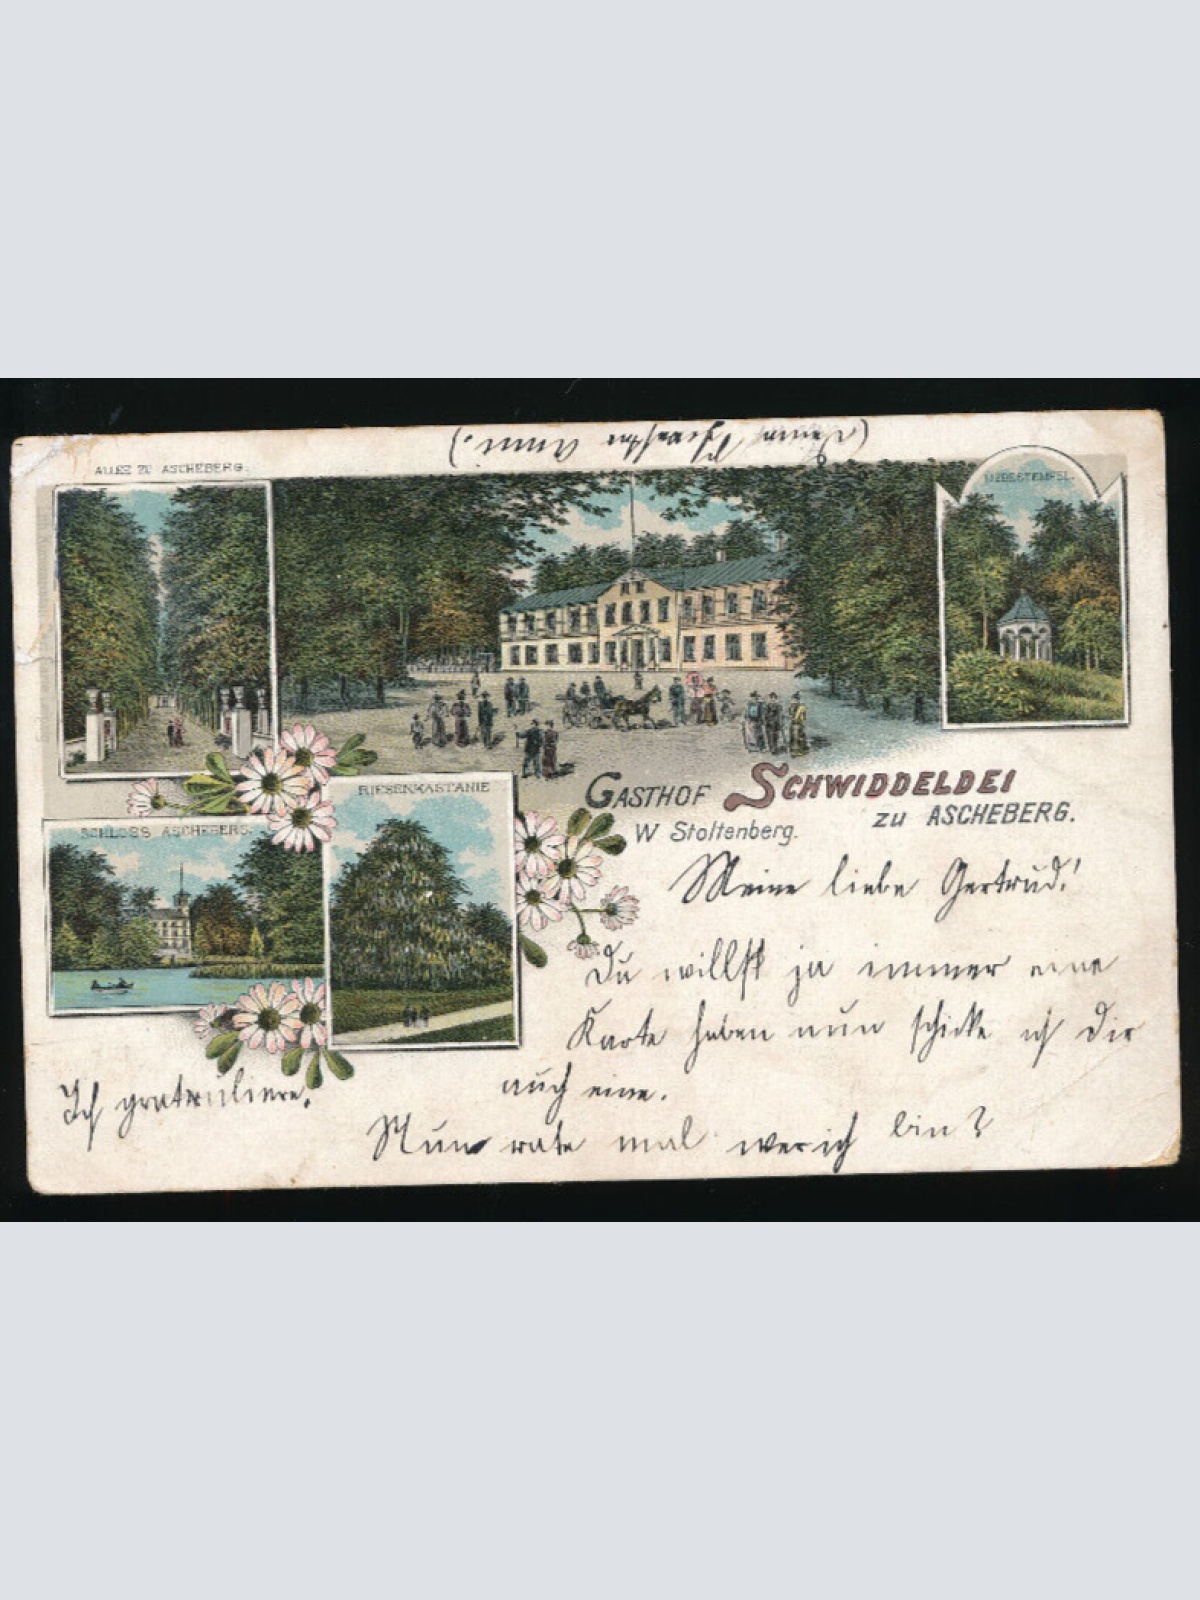 (Deine Schwester Anni.)
ALLEE ZU ASCHEBERG.
LIEBESTEMPEL.
RIESENKASTANIE
SCHLOSS ASCHEBERG.
GASTHOF SCHWIDDELDEI
ZU ASCHEBERG.
W Stoltenberg.
Meine liebe Gertrud!
Du willst ja immer eine
Karte haben nun schicke ich Dir
auch eine.
Ich gratuliere.
Nun rate mal wer ich bin?